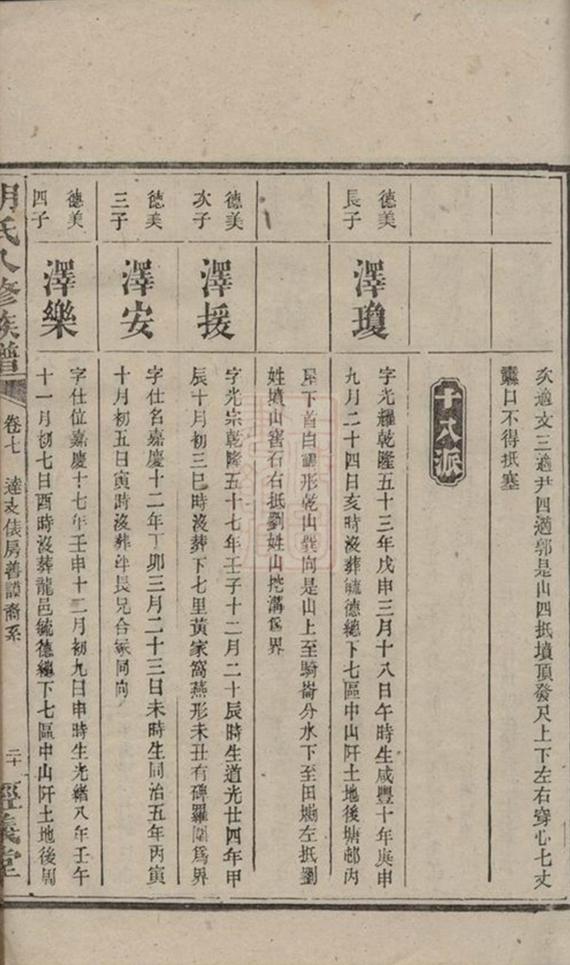 次適文三適尹四適郭是山四抵墳頂發尺上下左右穿心七丈
蠹口不得抵塞
十八派
德美
長子
澤瓊
字光耀乾隆五十三年戊申三月十八日午時生咸豐十年庚申
九月二十四日亥時沒葬毓德總下七區中山阡土地後塘邨丙
屋下首白形乾山巽向是山上至騎崙分水下至田墈左抵劉
姓墳山窖石右抵劉姓山挖溝爲界
德美
次子
澤援
字光宗乾隆五十七年壬子十二月二十辰時生道光廿四年甲
辰十月初三巳時沒葬下七里黃家窩燕形未丑有碑羅圍爲界
德美
三子
澤安
字仕名嘉慶十二年丁卯三月二十三日未時生同治五年丙寅
十月初五日寅時沒葬年長兄合冢同向
德美
四子
澤樂
字仕位嘉慶十七年壬申十二月初九日申時生光緒八年壬午
十一月初七日酉時沒葬龍邑毓德總下七區中山阡土地後周
胡氏八修族譜
卷七
達支俵房善謨裔系
二十
經義堂